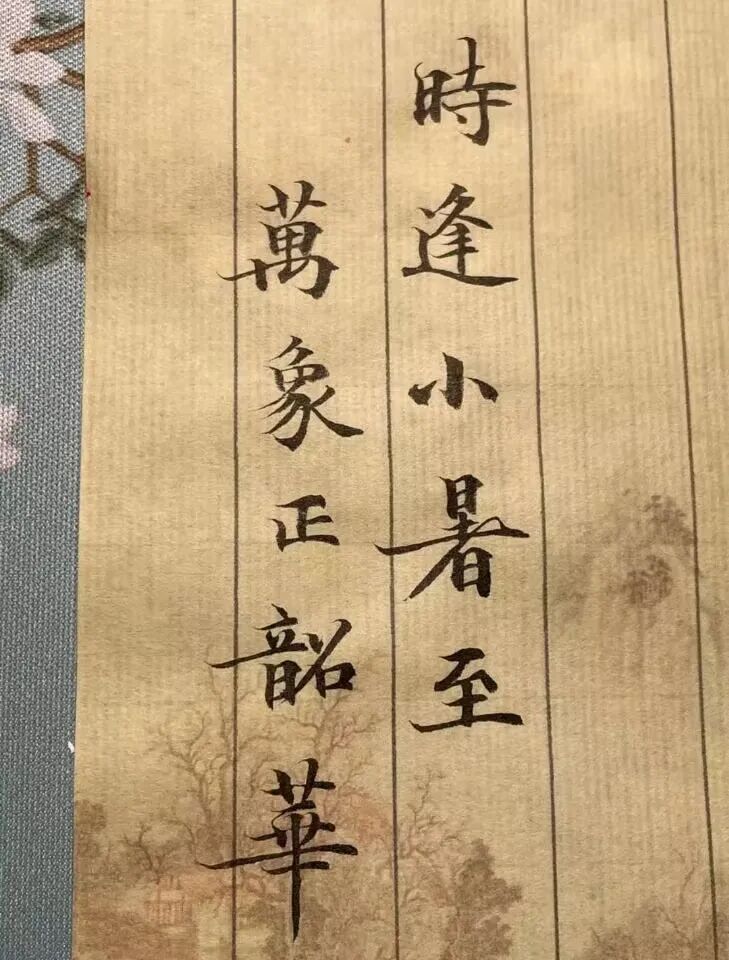 時逢小暑至
萬象正韶華